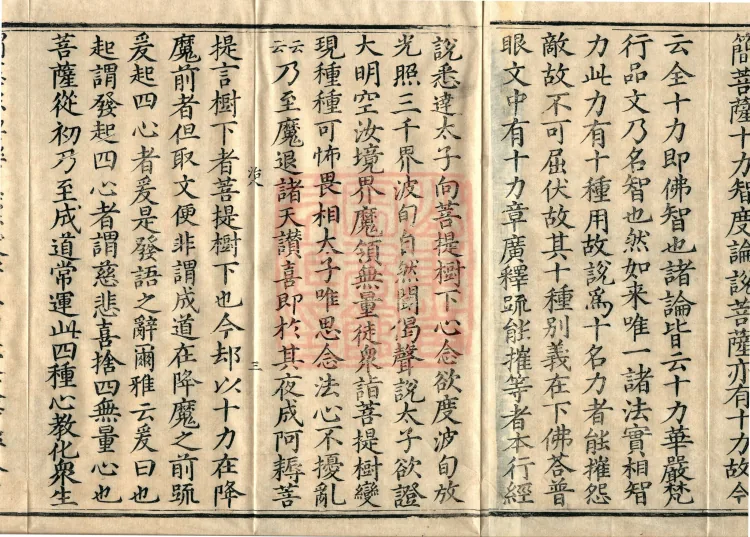 簡菩薩十力智度論說菩薩亦有十力故今
云全十力即佛智也諸論皆云十力華嚴梵
行品文乃名智也然如来唯一諸法實相智
力此力有十種用故說爲十名力者能摧怨
敵故不可屈伏故其十種別義在下佛荅普
眼文中有十力章廣釋䟽能摧等者本行經
說悉達太子向菩提樹下心念欲度波旬放
光照三千界波旬自然聞偈聲說太子欲證
大明空汝境界魔領無量徒衆詣菩提樹變
現種種可怖畏相太子唯思念法心不擾亂
云云乃至魔退諸天讃喜即於其夜成阿耨菩
治八
三
提言樹下者菩提樹下也今却以十力在降
魔前者但取文便非謂成道在降魔之前䟽
爰起四心者爰是發語之辭爾雅云爰曰也
起謂發起四心者謂慈悲喜捨四無量心也
菩薩從初乃至成道常運此四種心教化衆生